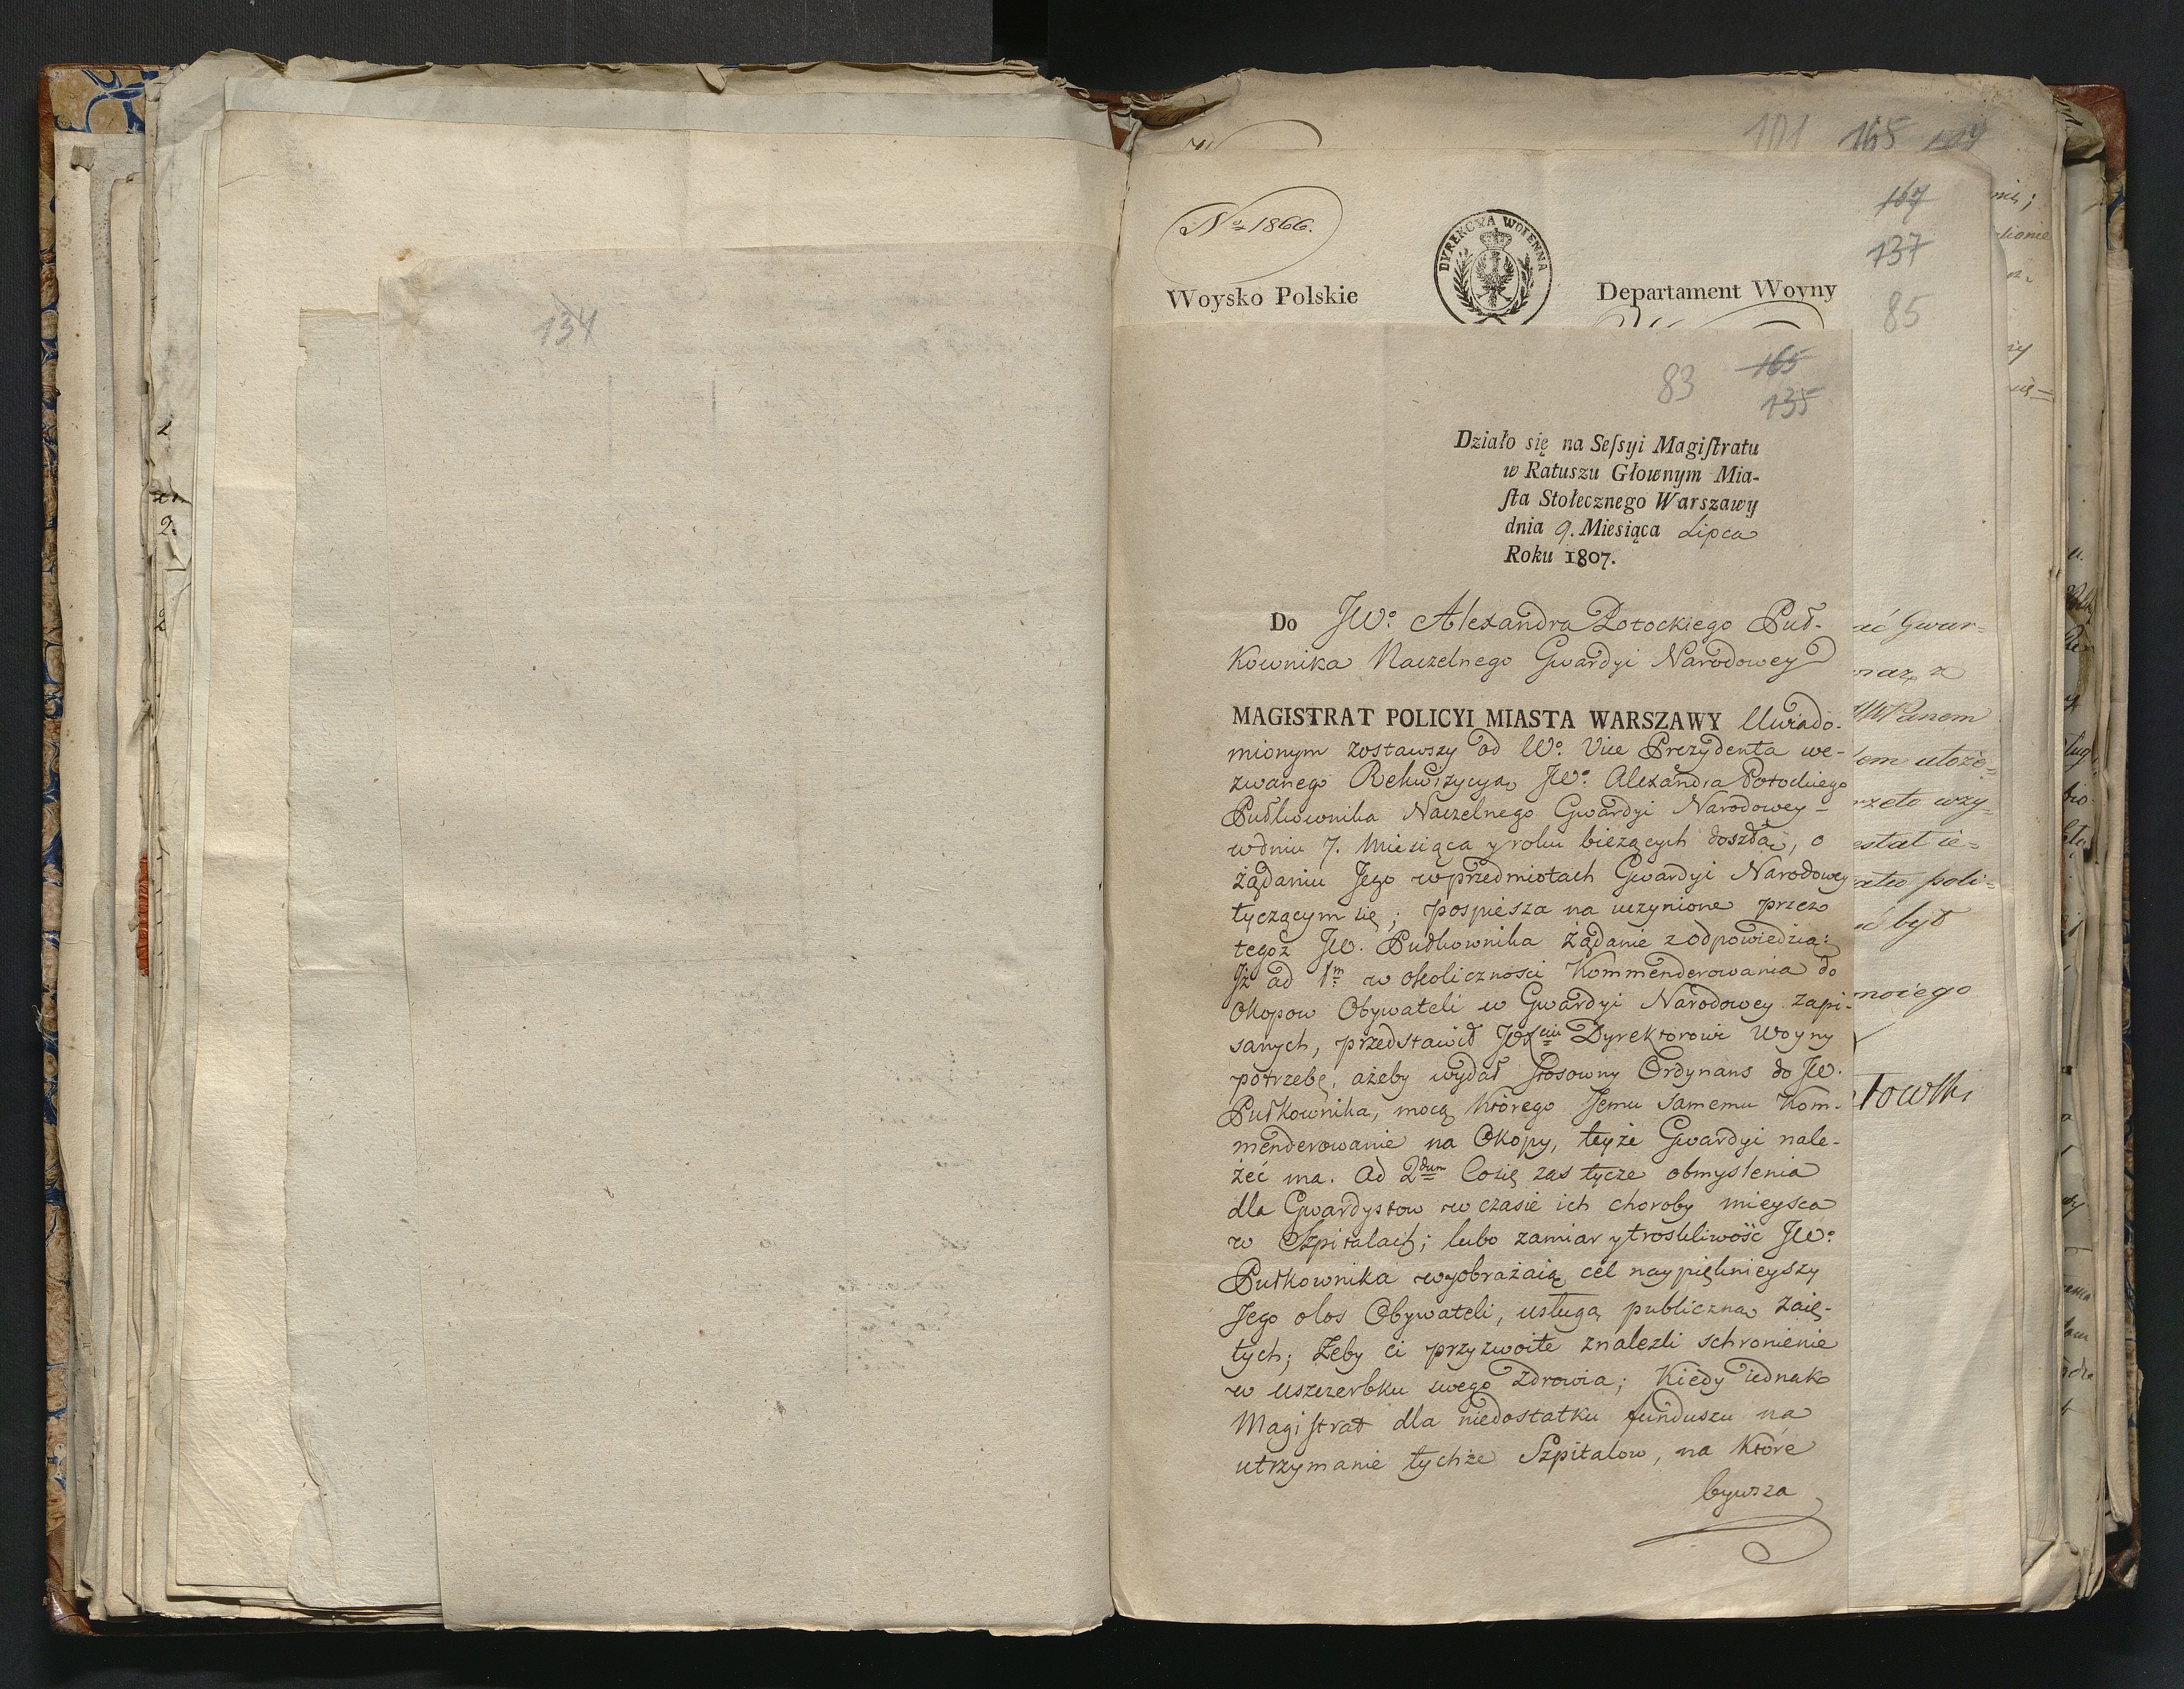 134
101 165 109
No 1866.
DYREKCYA WOIENNA
Woysko Polskie
Departament Woyny
167
137
85
83
165
135
Działo się na Seſsyi Magiſtratu
w Ratuszu Głownym Mia-
ſta Stołecznego Warszawy
dnia 9. Miesiąca Lipca
Roku 1807.
Do JWo. Alexandra Potockiego Puł-
kownika Naczelnego Gwardyi Narodowey
MAGISTRAT POLICYI MIASTA WARSZAWY Uwiado-
mionym zostawszy od Wo. Vice Prezydenta we-
zwanego Rekwizycyą JWo. Alexandra Potockiego
Pułkownika Naczelnego Gwardyi Narodowey
w dniu 7. Miesiąca y roku bieżących doszłą, o
żądaniu Jego w przedmiotach Gwardyi Narodowey
tyczącym się; pospiesza na uczynione przez
tegoż JW. Pułkownika żądanie z odpowiedzią:
Jż ad 1m w okoliczności Kommenderowania do
Okopow Obywateli w Gwardyi Narodowey zapi-
sanych, przedstawił Dyrektorowi Woyny
potrzebę, ażeby wydał stosowny Ordynans do JW.
Pułkownika, mocą którego Jemu samemu Kom-
menderowanie na Okopy, teyże Gwardyi nale-
żeć ma. Ad 2dum Co się zas tycze obmyslenia
dla Gwardystow w czasie ich choroby mieysca
w Szpitalach; lubo zamiar y troskliwość JWo.
Pułkownika wyobrażaią cel naypięknieyszy
Jego o los Obywateli, usługą publiczną zaię-
tych; Żeby ci przyzwoite znalezli schronienie
w uszczerbku swego zdrowia; Kiedy iednak
Magiſtrat dla niedostatku funduszu na
utrzymanie tychże Szpitalow, na które
bywsza
ać Gwar=
oraz z
JWPanem
ułożo=
wzy=
poli=
był
moiego
towski